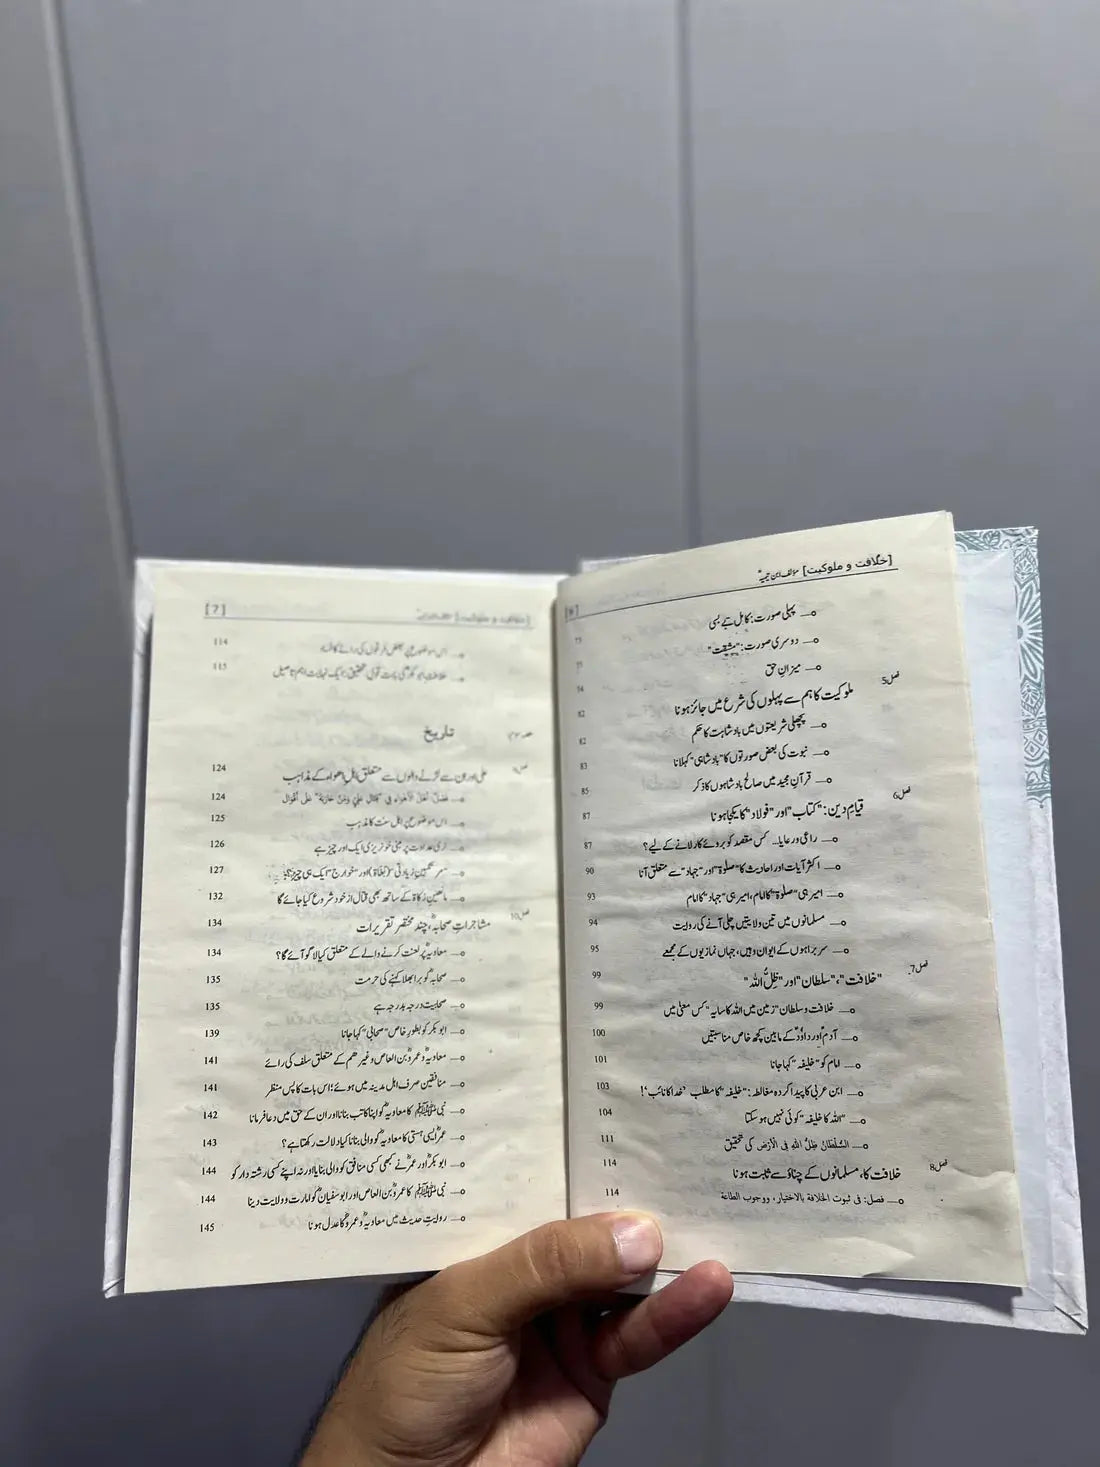 [خلافت و ملوکیت] مؤلف ابن تیمیہؒ
پہلی صورت: کامل بے بسی
دوسری صورت: "مشقت"
میزانِ حق
فصل5 ملوکیت کا ہم سے پہلوں کی شرع میں جائز ہونا 82
پچھلی شریعتوں میں بادشاہت کا حکم 82
نبوت کی بعض صورتوں کا "بادشاہی" کہلانا 83
قرآنِ مجید میں صالح بادشاہوں کا ذکر 85
فصل6 قیامِ دین: "کتاب" اور "فولاد" کا یکجا ہونا 87
راعی و رعایا... کس مقصد کو بروئے کار لانے کے لیے؟ 87
اکثر آیات اور احادیث کا "صلوٰۃ" اور "جہاد" سے متعلق آنا 90
امیر ہی "صلوٰۃ" کا امام، امیر ہی "جہاد" کا امام 93
مسلمانوں میں تین ولایتیں چلی آنے کی روایت 94
سربراہوں کے ایوان وہیں، جہاں نمازیوں کے مجمعے 95
فصل7 "خلافت"، "سلطان" اور "ظِلُّ اللہ" 99
خلافت و سلطان "زمین میں اللہ کا سایہ" کس معنیٰ میں 99
آدمؑ اور داوٗدؑ کے مابین کچھ خاص مناسبتیں 100
امام کو "خلیفہ" کہا جانا 101
ابن عربی کا پیدا کردہ مغالطہ: "خلیفہ" کا مطلب 'خدا کا نائب'! 103
"اللہ کا خلیفہ" کوئی نہیں ہو سکتا 104
السُّلطَانُ ظِلُّ اللّٰهِ فِي الْأَرْضِ کی تحقیق 111
فصل8 خلافت کا، مسلمانوں کے چناؤ سے ثابت ہونا 114
فصل: فی ثبوت الخلافة بالاختیار، ووجوب الطاعة 114
[7] [خلافت و ملوکیت]
اس موضوع پر بعض فرقوں کی رائے کا فساد 114
خلافتِ ابوبکرؓ کی بابت قولی تحقیق؛ ایک نہایت اہم تاصیل 115
تاریخ
علیؓ اور ان سے لڑنے والوں سے متعلق اہل اھواء کے مذاہب 124
فَصْلُ أَهْلِ الْأَهْوَاءِ فِي "قِتَالِ عَلِيٍّ وَمَنْ حَارَبَهُ" عَلَى أَقْوَالٍ 124
اس موضوع پر اہل سنت کا مذہب 125
نری عداوت پر مبنی خونریزی ایک اور چیز ہے 126
"سرکش زیادتی" (بغاۃ) اور "خوارج" ایک ہی چیز؟ 127
مانعینِ زکاۃ کے ساتھ بھی قتال از خود شروع کیا جائے گا 132
فصل10 مشاجراتِ صحابہؓ، چند مختصر تقریرات 134
معاویہؓ پر لعنت کرنے والے کے متعلق کیا لاگو آئے گا؟ 134
صحابہؓ کو برا بھلا کہنے کی حرمت 135
صحابیت درجہ بدرجہ ہے 135
ابوبکرؓ کو بطورِ خاص "صحابی" کہا جانا 139
معاویہؓ و عمروؓ بن العاص و غیرھم کے متعلق سلف کی رائے 141
منافقین صرف اہل مدینہ میں ہوئے؛ اس بات کا پس منظر 141
نبی ﷺ کا معاویہؓ کو اپنا کاتب بنانا اور ان کے حق میں دعا فرمانا 142
عمرؓ ایسی ہستی کا معاویہؓ کو والی بنانا کیا دلالت رکھتا ہے؟ 143
ابوبکرؓ اور عمرؓ نے کبھی کسی منافق کو والی بنایا اور نہ اپنے کسی رشتہ دار کو 144
نبی ﷺ کا عمروؓ بن العاص اور ابو سفیانؓ کو امارت و ولایت دینا 144
روایتِ حدیث میں معاویہؓ و عمروؓ کا عدل ہونا 145